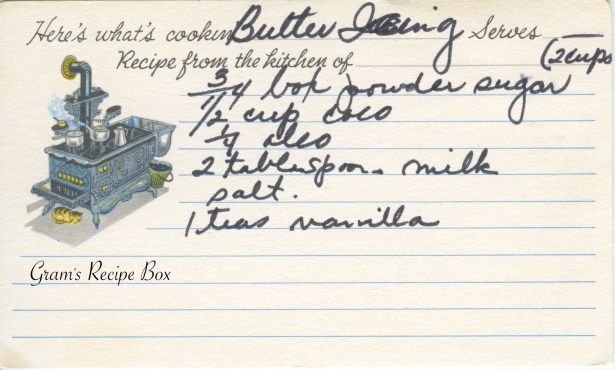 Here's what's cookin Butter Icing Serves
Recipe from the kitchen of (2 cups
3/4 box powder sugar
1/2 cup coco
1/4 oleo
2 tablespoon. milk
salt.
1 teas vanilla
Gram's Recipe Box